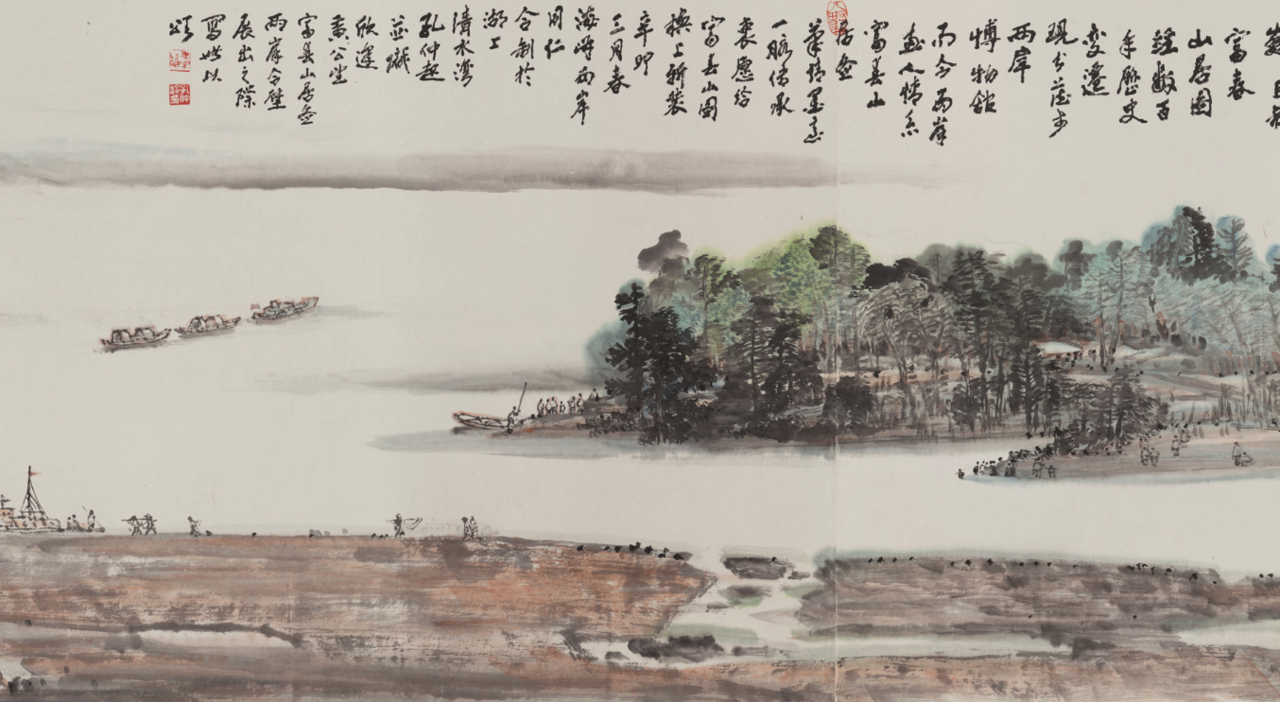 富春
山居圖
經數百
年歷史
變遷
現分藏於
兩岸
博物館
而今兩岸
畫人情系
富春山
居圖
筆情墨意
一脈傳承
衷愿給
富春山圖
換上新裝
辛卯
三月春
兩岸
同仁
合制於
湖上
清水灣
孔仲起
並識
欣逢
黃公望
富春山居圖
兩岸合璧
展出之際
寫此以
頌